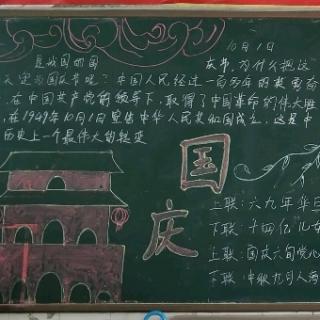 10月1日
是我国的国庆节,为什么把这
天定为国庆节呢?中国人民经过一百多年的英勇奋
在中国共产党的领导下,取得了中国革命的伟大胜
在1949年10月1日宣告中华人民共和国成立,这是中
历史上一个最伟大的转变
国
庆
上联:六九年华日
下联:十四亿儿女
上联:国庆六旬
下联:中秋九月人